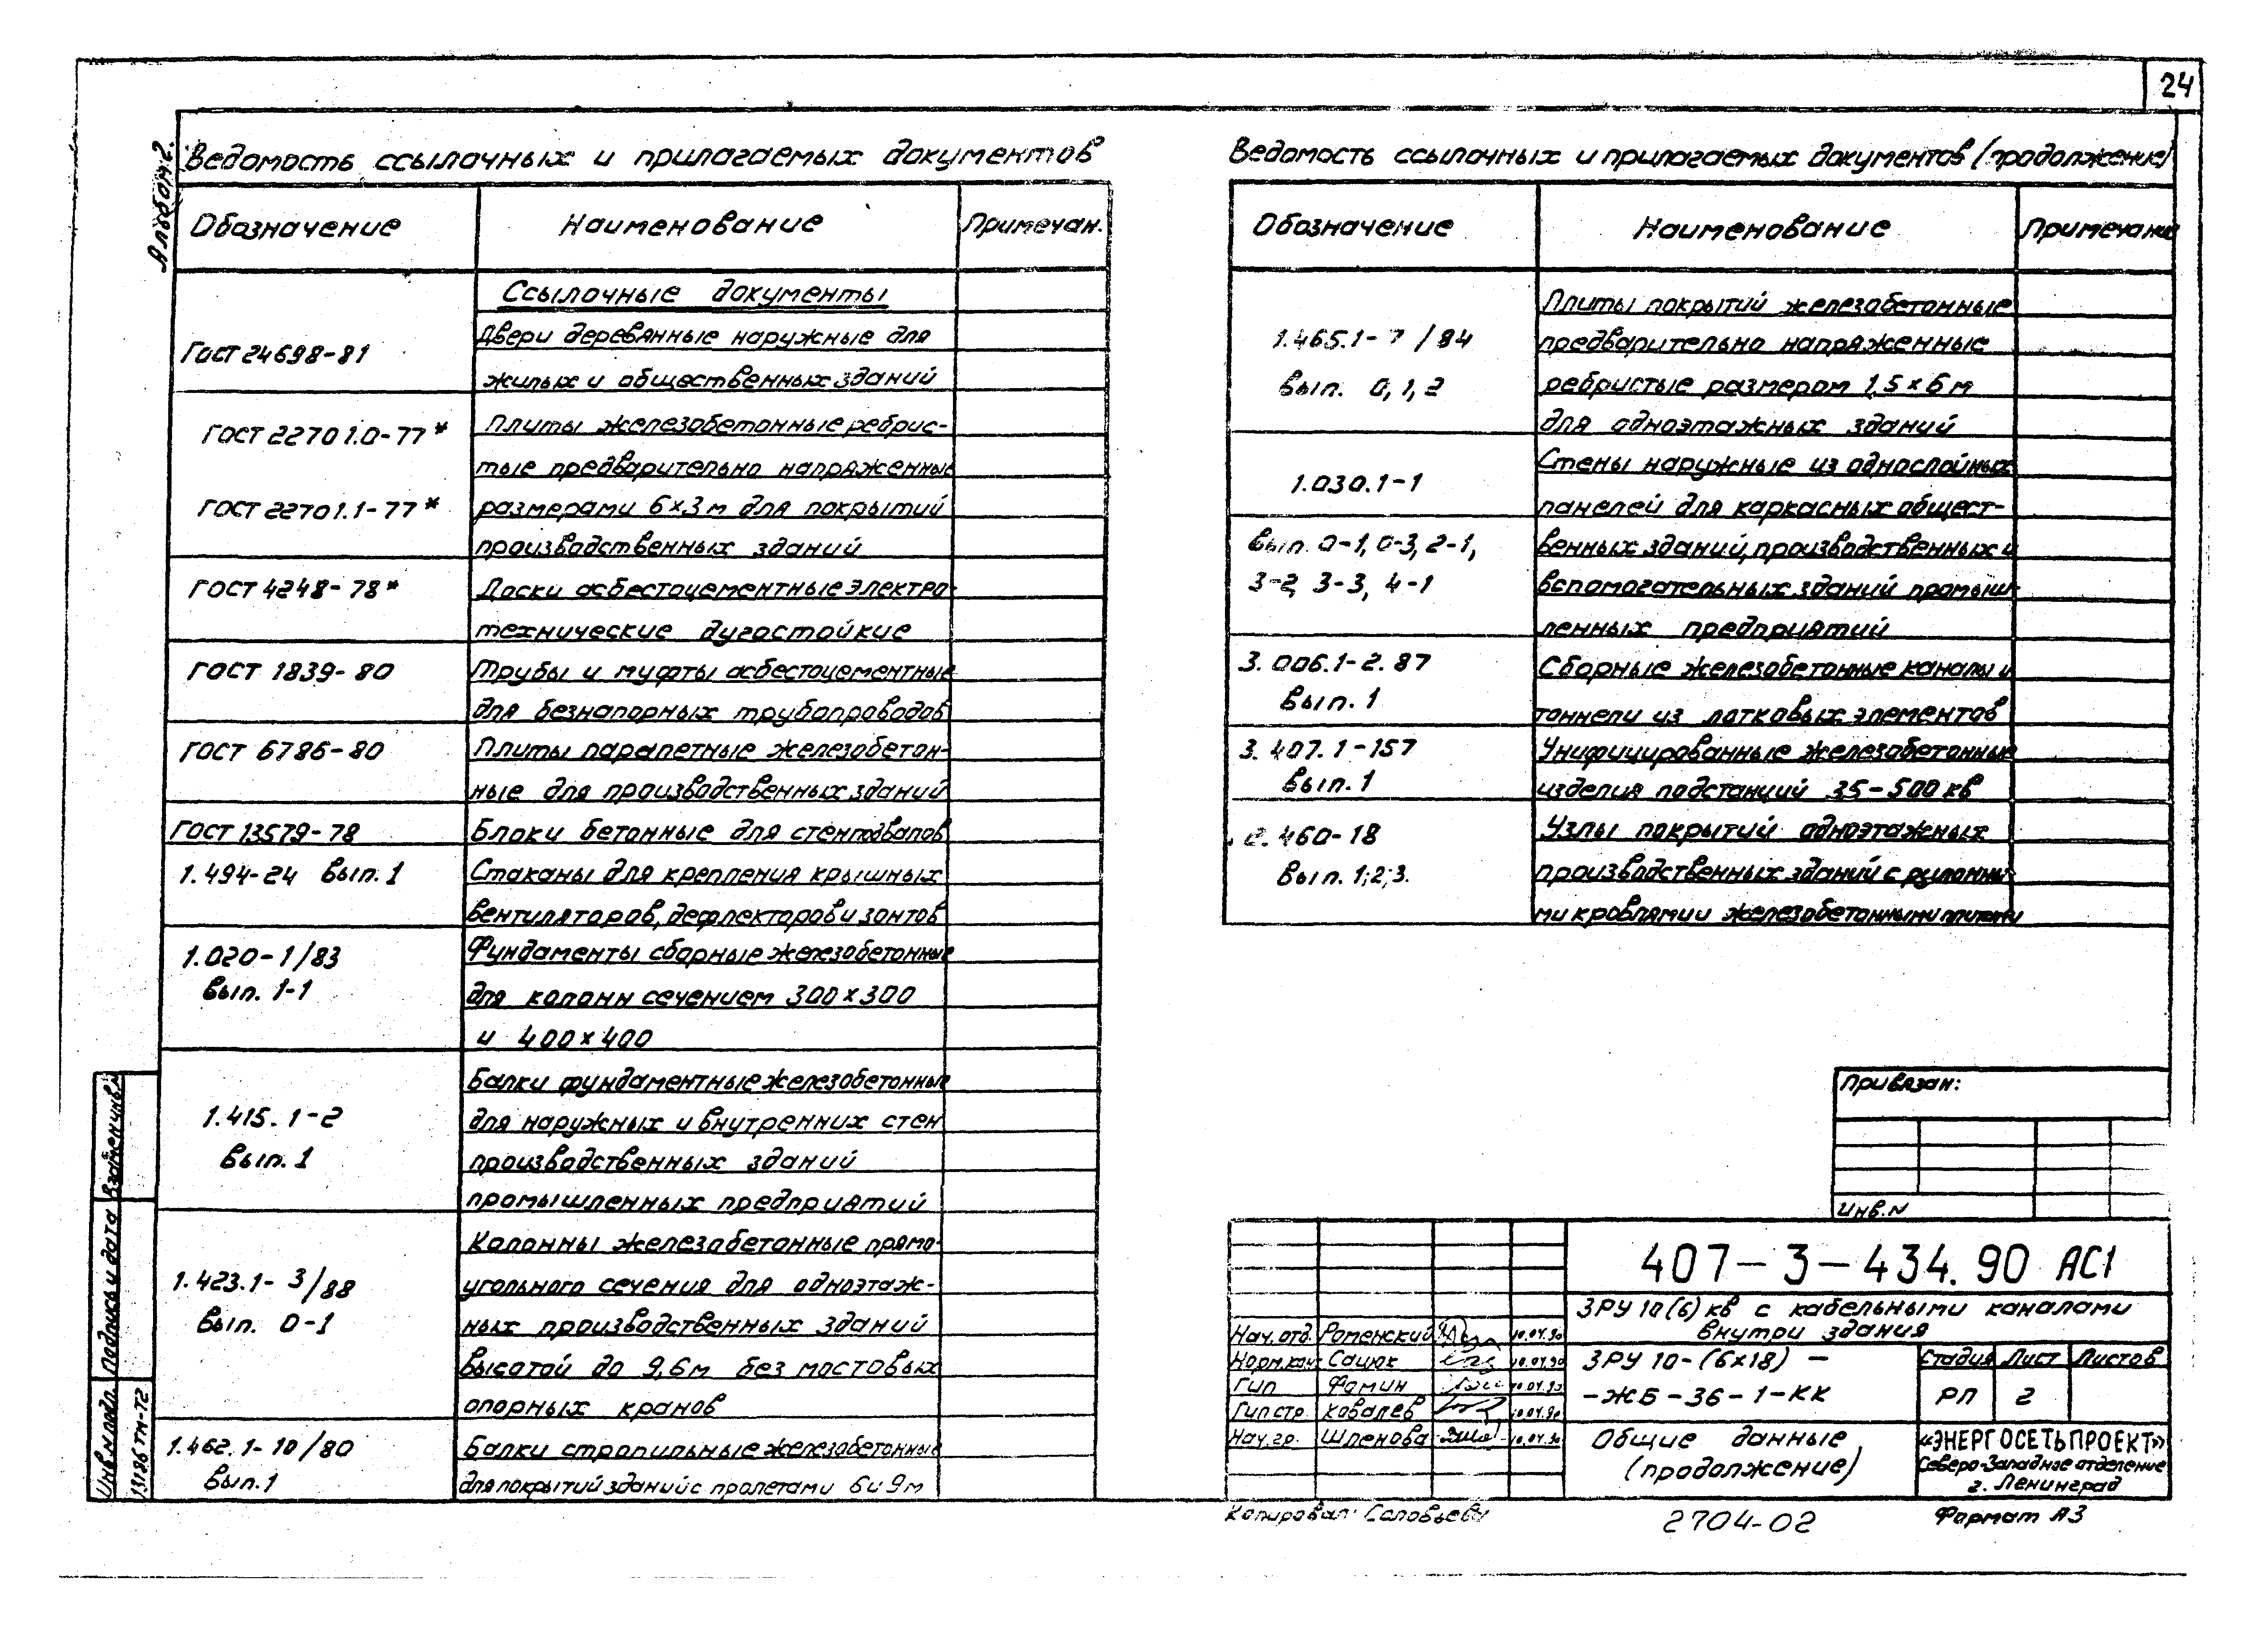 24
Альбом 2.
Ведомость ссылочных и прилагаемых документов
Обозначение Наименование Примечан.
Ссылочные документы
ГОСТ 24698-81 Двери деревянные наружные для
жилых и общественных зданий
ГОСТ 22701.0-77* Плиты железобетонные ребрис-
тые предварительно напряженные
ГОСТ 22701.1-77* размерами 6×3м для покрытий
производственных зданий
ГОСТ 4248-78* Доски асбестоцементные электро-
технические дугостойкие
ГОСТ 1839-80 Трубы и муфты асбестоцементные
для безнапорных трубопроводов
ГОСТ 6786-80 Плиты парапетные железобетон-
ные для производственных зданий
ГОСТ 13579-78 Блоки бетонные для стен подвалов
1.494-24 Вып. 1 Стаканы для крепления крышных
вентиляторов, дефлекторов и зонтов
1.020-1/83 Фундаменты сборные железобетонные
Вып. 1-1 для колонн сечением 300×300
и 400×400
Балки фундаментные железобетонные
1.415.1-2 для наружных и внутренних стен
Вып. 1 производственных зданий
промышленных предприятий
Колонны железобетонные прямо-
1.423.1-3/88 угольного сечения для одноэтаж-
Вып. 0-1 ных производственных зданий
высотой до 9,6м без мостовых
опорных кранов
1.462.1-10/80 Балки стропильные железобетонные
Вып.1 для покрытий зданий с пролетами 6 и 9м
Ведомость ссылочных и прилагаемых документов (продолжение)
Обозначение Наименование Примечание
Плиты покрытий железобетонные
1.465.1-7/84 предварительно напряженные
Вып. 0, 1, 2 ребристые размером 1,5×6м
для одноэтажных зданий
Стены наружные из однослойных
1.030.1-1 панелей для каркасных общест-
Вып. 0-1, 0-3, 2-1, венных зданий, производственных и
3-2, 3-3, 4-1 вспомогательных зданий промыш-
ленных предприятий
3.006.1-2.87 Сборные железобетонные каналы и
Вып. 1 тоннели из лотковых элементов
3.407.1-157 Унифицированные железобетонные
Вып.1 изделия подстанций 35-500 кв
2.460-18 Узлы покрытий одноэтажных
Вып. 1;2;3. производственных зданий с рулонны-
ми кровлями и железобетонными плитами
Привязан:
Инв.N
407-3-434.90 АС1
ЗРУ 10(6) кв с кабельными каналами
внутри здания
Нач.отд. Роменский 10.04.90
Норм.кон. Сацюк 10.04.90
ГИП Фомин 10.04.90
Гип стр. Ковалев 10.04.90
Нач.гр. Шленова 10.04.90
ЗРУ 10-(6×18) -
-ЖБ-36-1-КК
Стадия Лист Листов
РП 2
Общие данные
(продолжение)
«ЭНЕРГОСЕТЬПРОЕКТ»
Северо-Западное отделение
г. Ленинград
Копировал: Соловьева
2704-02
Формат А3
Взамен инв.N
Подпись и дата
Инв.N подл.
13186 ТМ-Т2